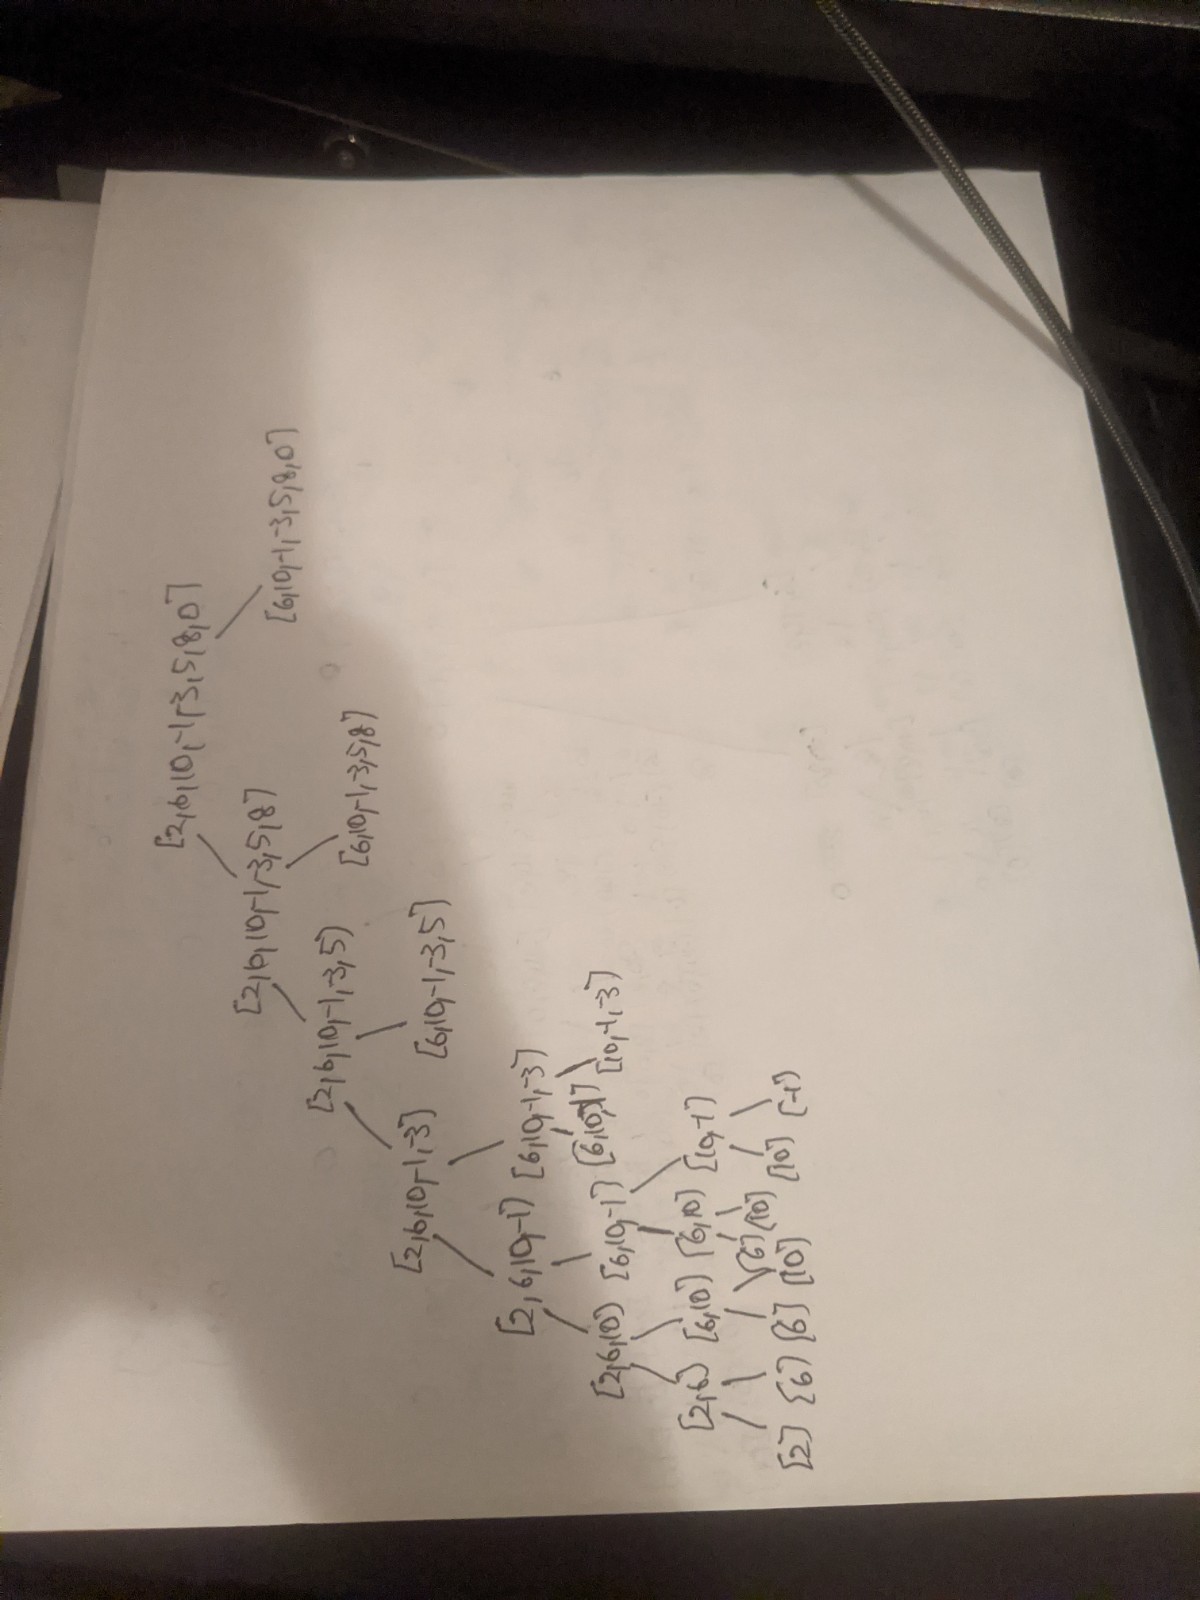 [2,6,10,-1,-3,5,8,0]
[2,6,10,-1,-3,5,8] [6,10,-1,-3,5,8,0]
[2,6,10,-1,-3,5] [6,10,-1,-3,5,8]
[2,6,10,-1,-3] [6,10,-1,-3,5]
[2,6,10,-1] [6,10,-1,-3]
[2,6,10] [6,10,-1] [6,10,-1] [10,-1,-3]
[2,6] [6,10] [6,10] [10,-1]
[6] [10] [10] [-1]
[2] [6] [6] [10]